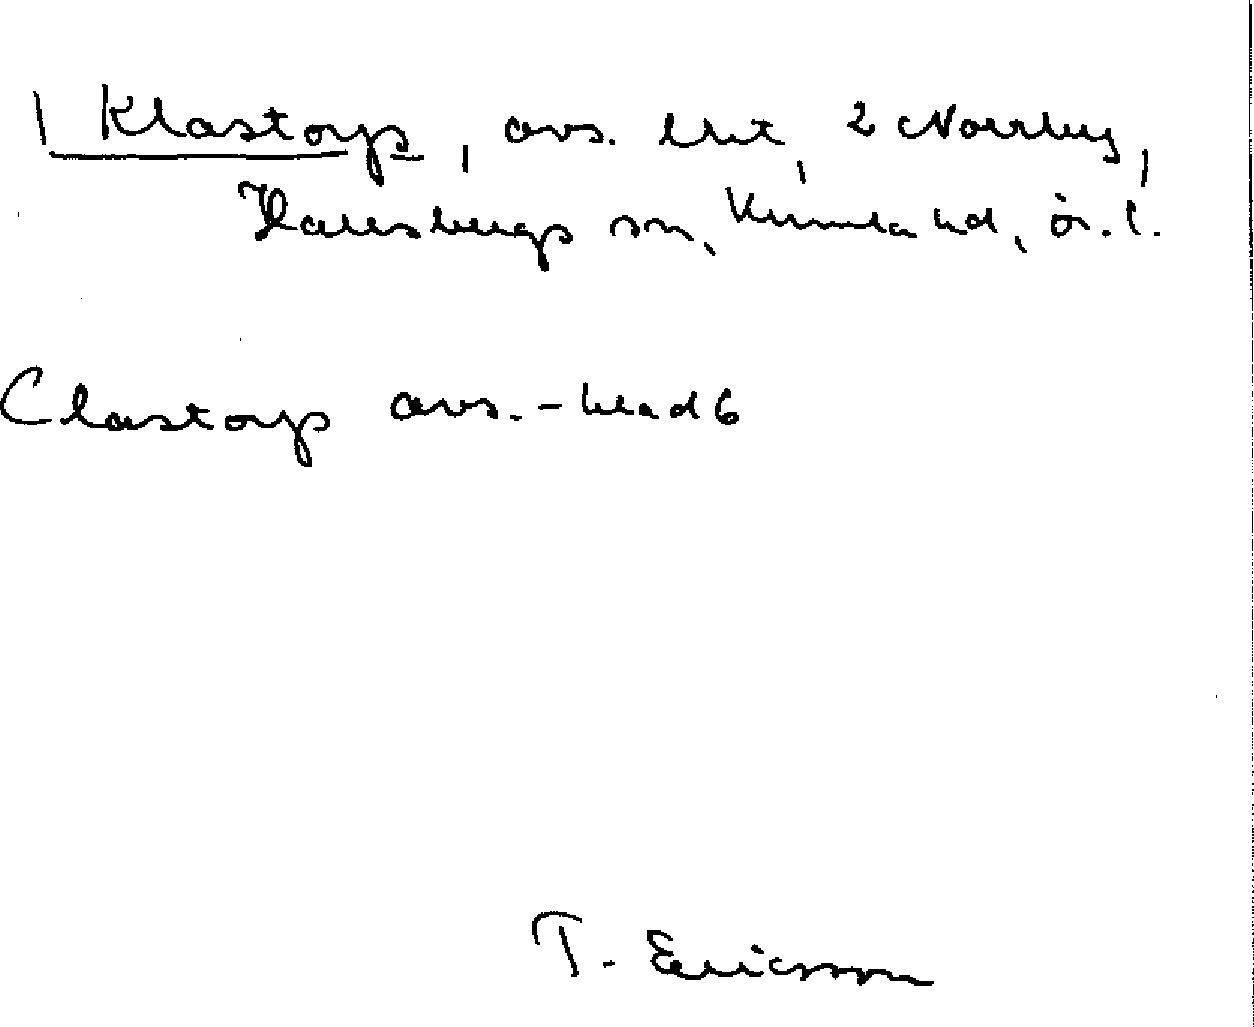 1 Klastorp, avs. lht, 2 Norrby,
Hallsbergs sn, Kumla hd, ör. l.
Clastorp avs. - blad 6
T. Ericson